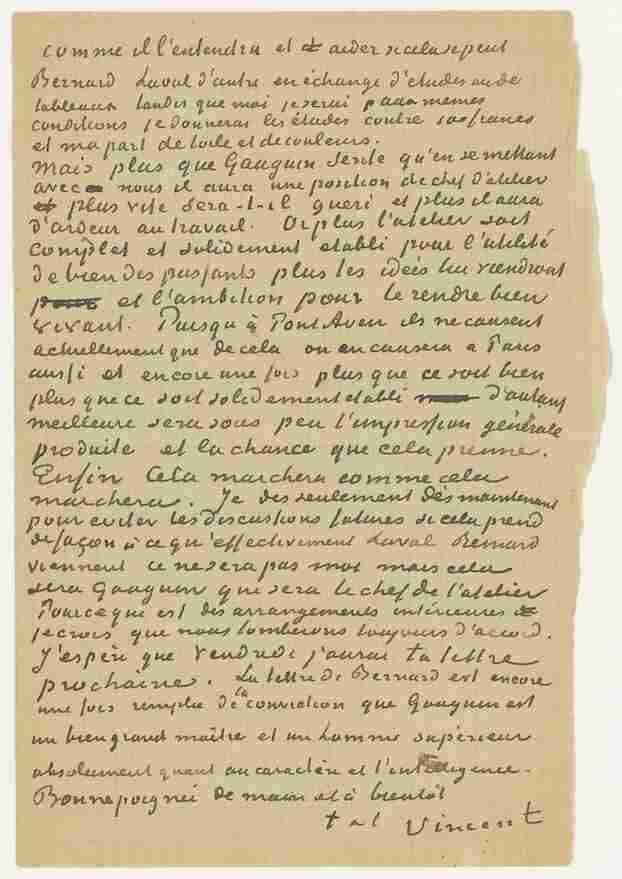 comme il l'entendra et aider si cela se peut
Bernard Laval d'autre en échange d'études ou de
tableaux tandis que moi je serai aux mêmes
conditions je donnerai les études contre 100 francs
et ma part de toile et de couleurs.
Mais plus que Gauguin sente qu'en se mettant
avec nous il aura une position de chef d'atelier
plus vite sera-t-il gueri et plus il aura
d'ardeur au travail. Or plus l'atelier soit
complet et solidement etabli pour l'utilité
de bien des passants plus les idées lui viendront
et l'ambition pour le rendre bien
vivant. Puisqu'à Pont Aven ils ne causent
actuellement que de cela on en causera a Paris
aussi et encore une fois plus que ce soit bien
plus que ce soit solidement etabli d'autant
meilleure sera sous peu l'impression générale
produite et la chance que cela prenne.
Enfin Cela marchera comme cela
marchera. Je dis seulement dès maintenant
pour eviter les discussions futures si cela prend
de façon à ce qu'effectivement Laval Bernard
viennent ce ne sera pas moi mais cela
sera Gauguin qui sera le chef de l'atelier
Pour ce qui est des arrangements intérieures
je crois que nous tomberons toujours d'accord.
J'espère que Vendredi j'aurai ta lettre
prochaine. La lettre de Bernard est encore
une fois remplie de la conviction que Gauguin est
un bien grand maître et un homme supérieur
absolument quant au caractère et l'intelligence.
Bonne poignée de main et à bientôt
t à t Vincent